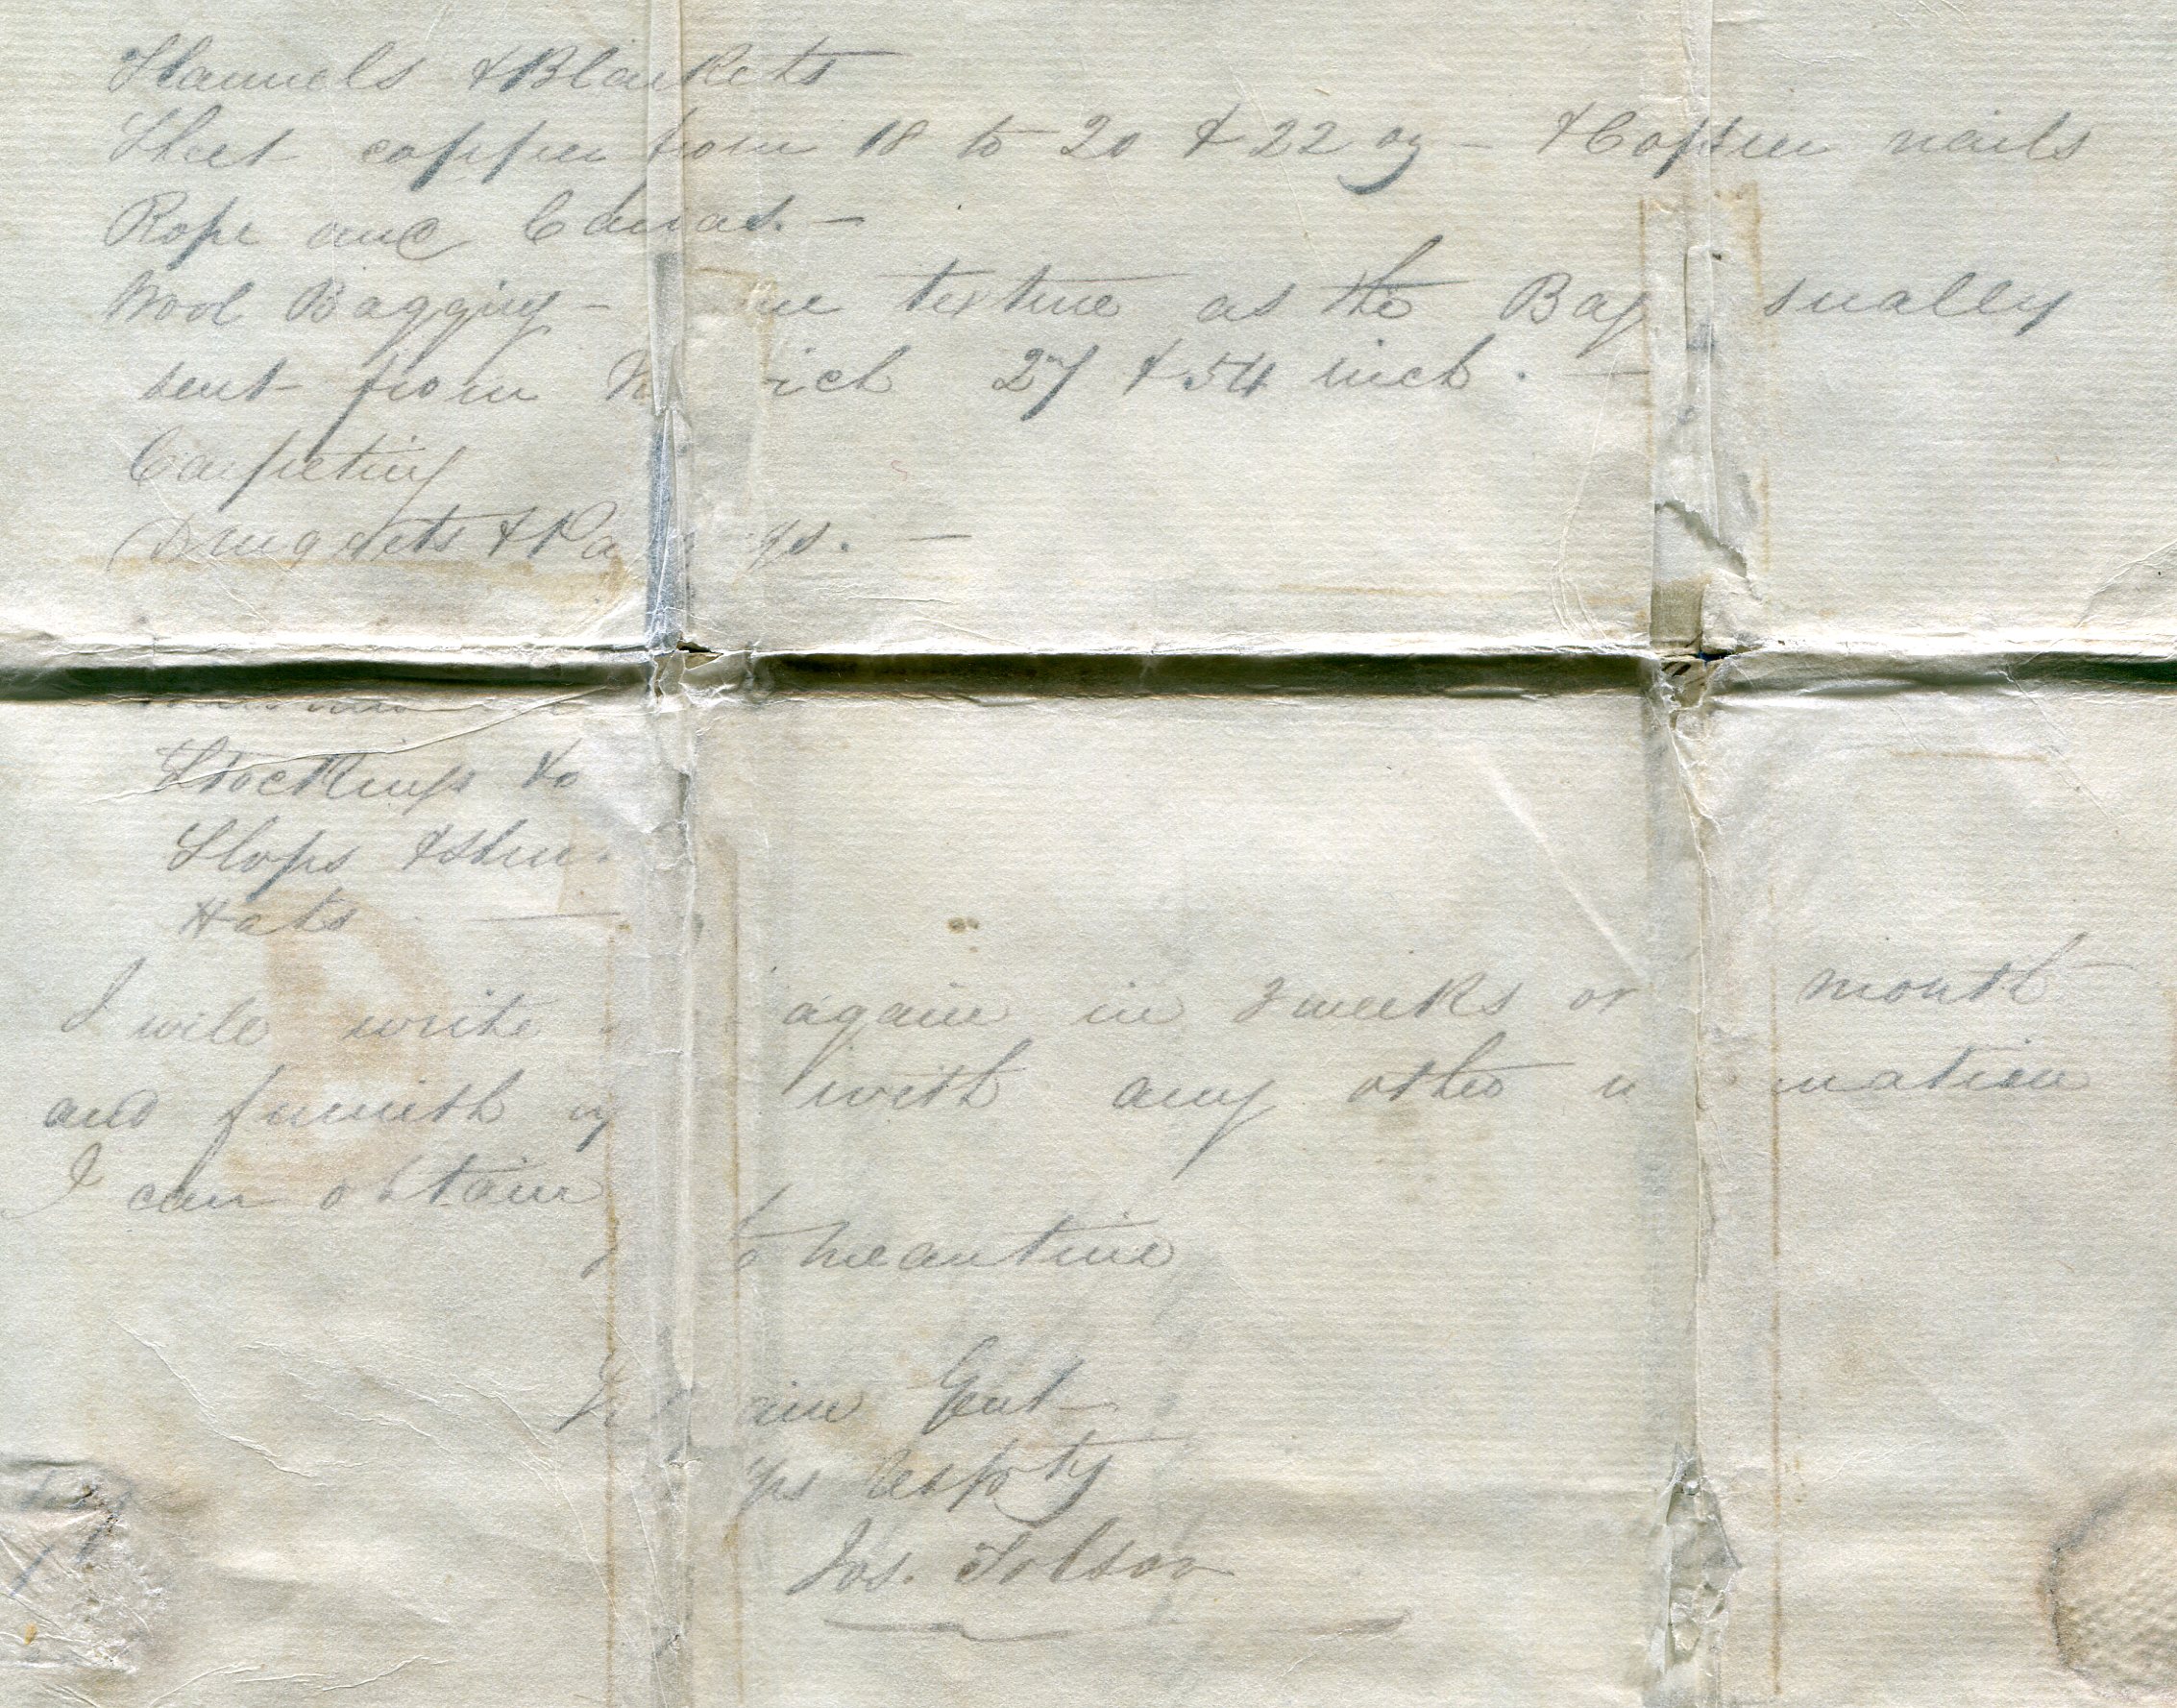 Flannels & Blankets
Sheet copper from 18 to 20 & 22 oz - & Copper nails
Rope and Canvas. -
Wool Bagging - texture as the Bag sually
sent from 27 & 54 inch. -
Carpeting
Druggets & -
Stockings do
Slops &
Hats -
I will write again in 3 weeks or month
and furnish with any other mation
I can obtain
meantime
ain Gent
Yrs respcty
Jos. Tolson